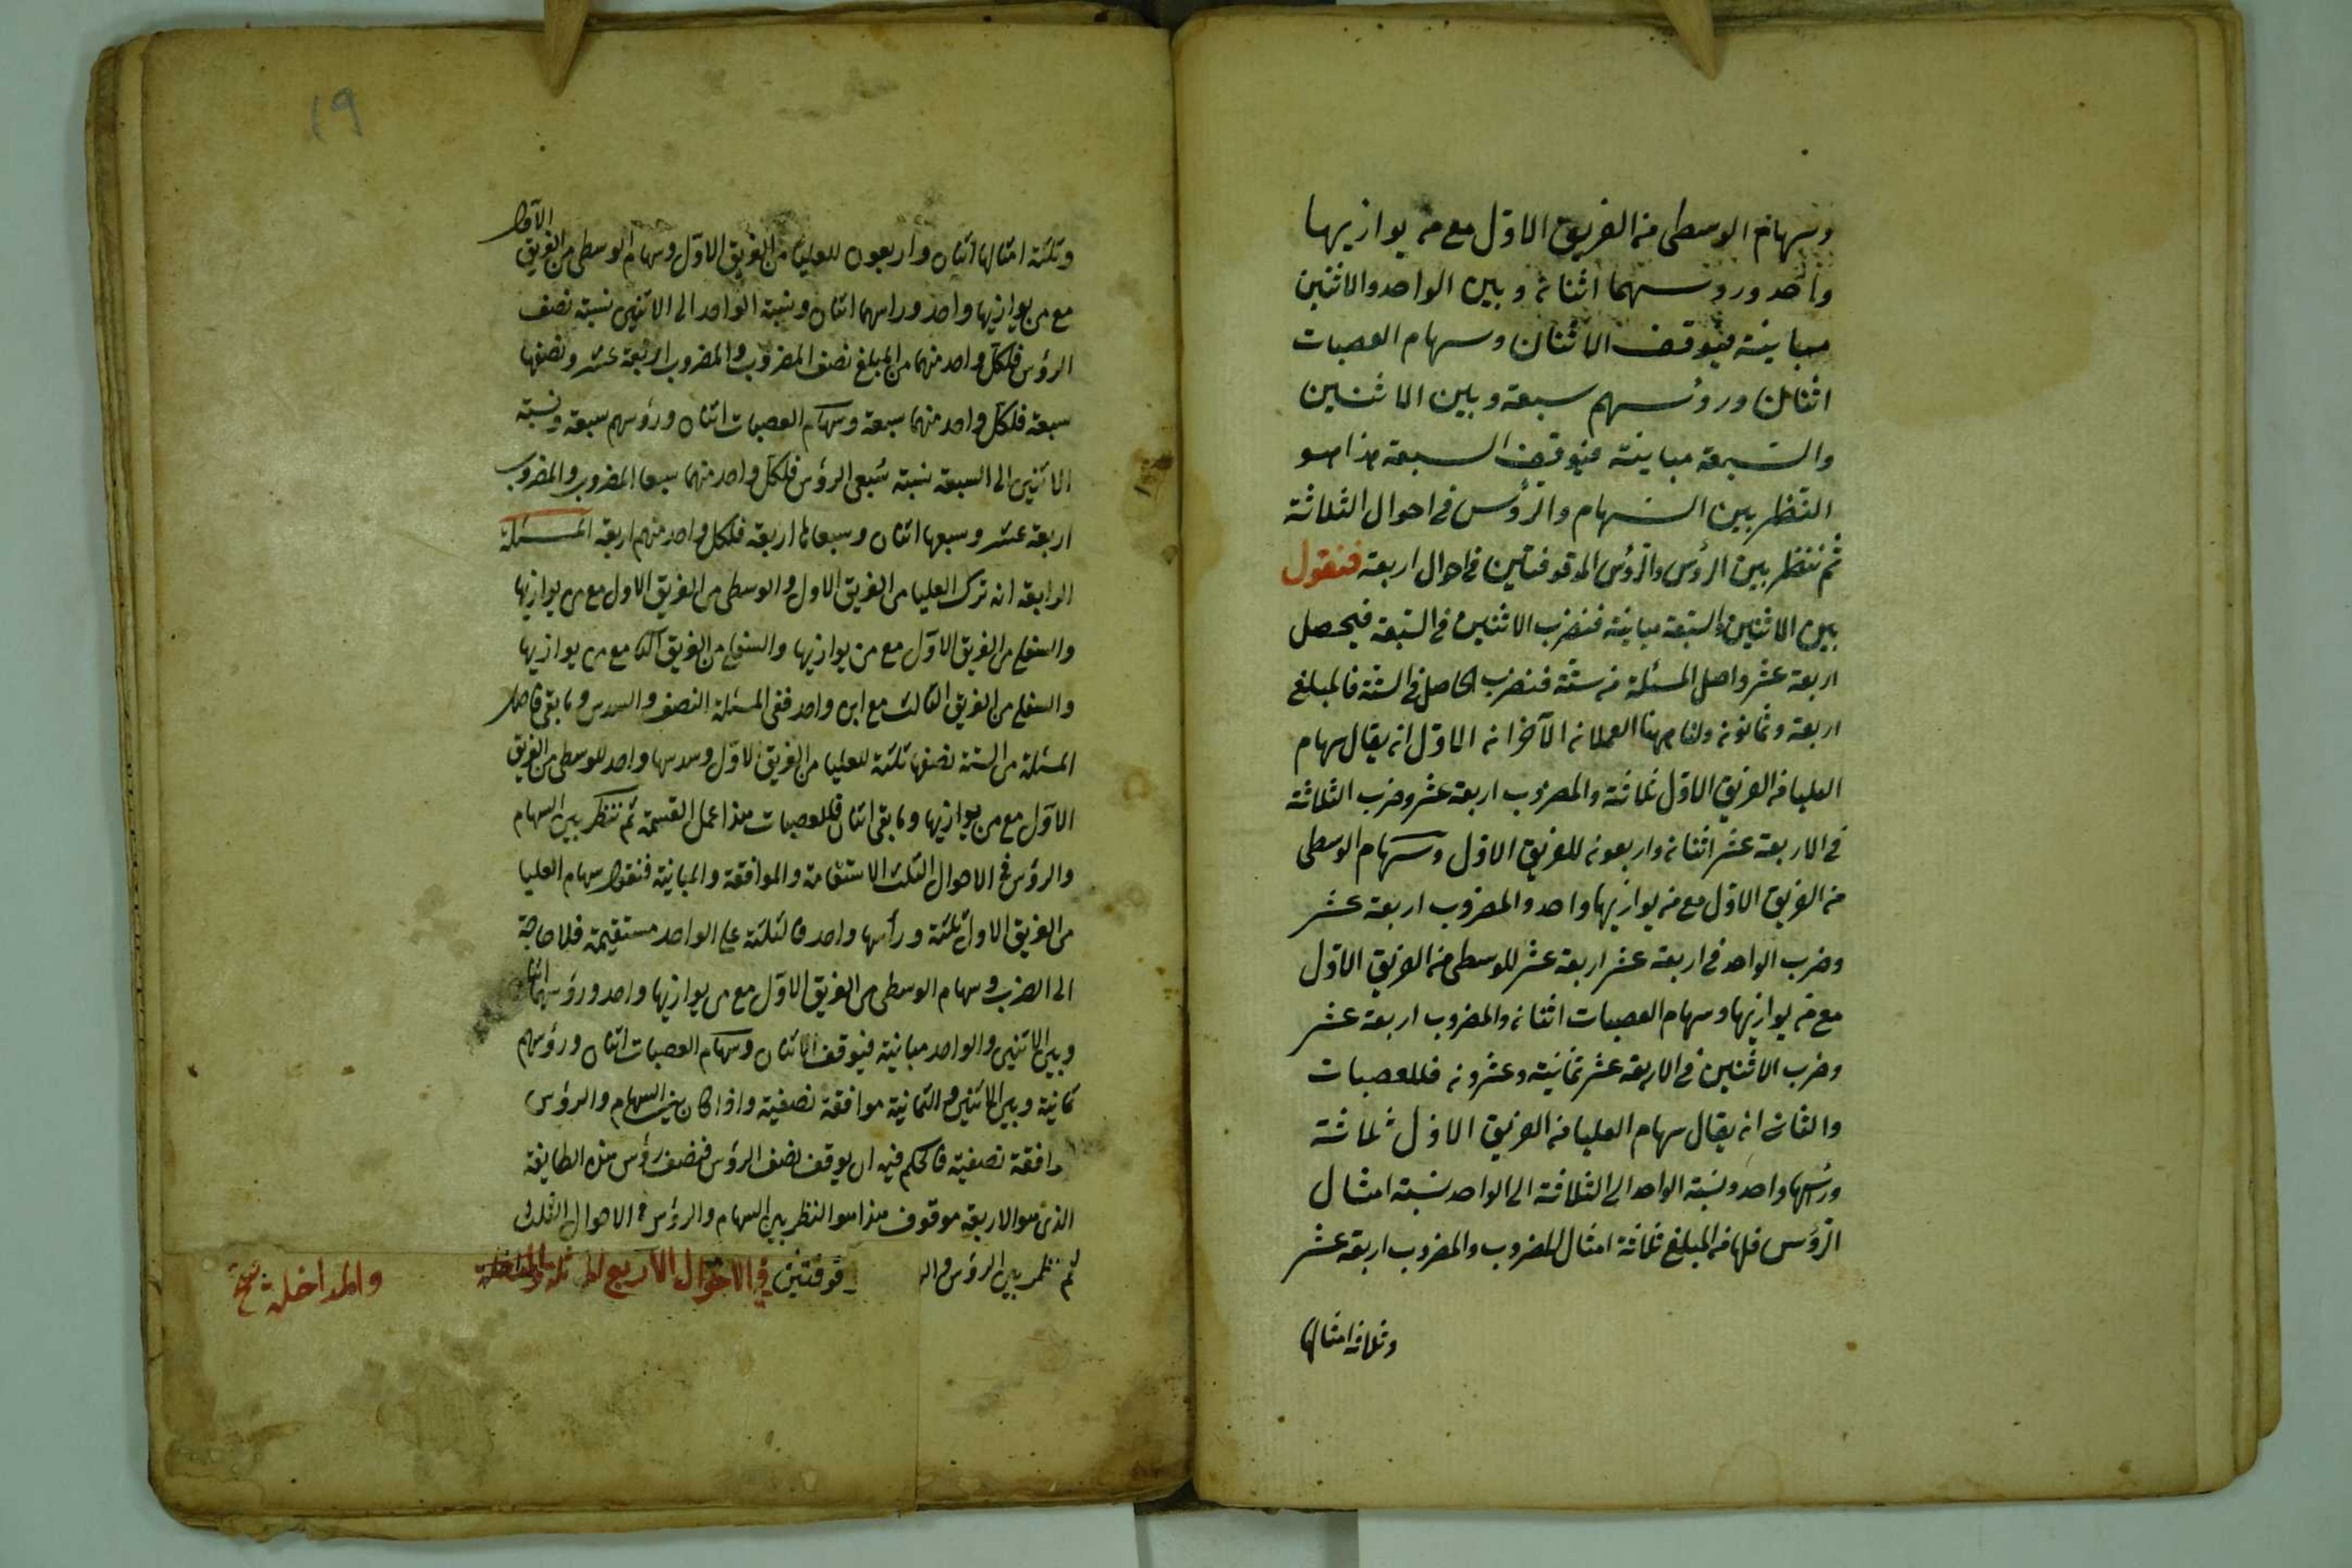 وسهام الوسطى من الفريق الاول مع من يوازيها
واحد وروسهما اثنان وبين الواحد والاثنين
مباينة فيوقف الاثنان وسهام العصبات
اثنان وروسهم سبعة وبين الاثنين
والسبعة مباينة فيوقف السبعة هذا هو
النظر بين السهام والرؤس في احوال الثلاثة
ثم ننظر بين الرؤس والرؤس الموقوفتين في احوال اربعة فنقول
بين الاثنين والسبعة مباينة فنضرب الاثنين في السبعة فيحصل
اربعة عشر واصل المسئلة من ستة فنضرب الحاصل في الستة فالمبلغ
اربعة وثمانون ولنا ههنا العملان الآخران الاول ان يقال سهام
العليا من الفريق الاول ثلاثة والمضروب اربعة عشر وضرب الثلاثة
في الاربعة عشر اثنان واربعون للفريق الاول وسهام الوسطى
من الفريق الاول مع من يوازيها واحد والمضروب اربعة عشر
وضرب الواحد في اربعة عشر اربعة عشر للوسطى من الفريق الاول
مع من يوازيها وسهام العصبات اثنان والمضروب اربعة عشر
وضرب الاثنين في الاربعة عشر ثمانية وعشرون فللعصبات
والثاني ان يقال سهام العليا من الفريق الاول ثلاثة
ورأسها واحد ونسبة الواحد الى الثلاثة الى الواحد نسبة امثال
الرؤس فلها من المبلغ ثلاثة امثال المضروب والمضروب اربعة عشر
وثلاثة امثالها
١٩
وثلثة امثالها اثنان واربعون للعليا من الفريق الاول وسهام الوسطى من الفريق الاول
مع من يوازيها واحد وراسهما اثنان ونسبة الواحد الى الاثنين نسبة نصف
الرؤس فلكل واحد منهما من المبلغ نصف المضروب والمضروب اربعة عشر ونصفها
سبعة فلكل واحد منهما سبعة وسهام العصبات اثنان ورؤسهم سبعة ونسبة
الاثنين الى السبعة نسبة سُبعى الرؤس فلكل واحد منهما سبعا المضروب والمضروب
اربعة عشر وسبعها اثنان وسبعاها اربعة فلكل واحد منهم اربعة المسئلة
الرابعة ان ترك العليا من الفريق الاول والوسطى من الفريق الاول مع من يوازيها
والسفلى من الفريق الاول مع من يوازيها والسفلى من الفريق الثاني مع من يوازيها
والسفلى من الفريق الثالث مع ابن واحد ففى المسئلة النصف والسدس وما بقى فاصل
المسئلة من الستة نصفها ثلثة للعليا من الفريق الاول وسدسها واحد للوسطى من الفريق
الاول مع من يوازيها وما بقى اثنان فللعصبات هذا عمل القسمة ثم ننظر بين السهام
والرؤس في الاحوال الثلث الاستقامة والموافقة والمباينة فنقول سهام العليا
من الفريق الاول ثلثة ورأسها واحد فالثلثة على الواحد مستقيمة فلا حاجة
الى الضرب وسهام الوسطى من الفريق الاول مع من يوازيها واحد ورؤسهما اثنان
وبين الاثنين والواحد مباينة فيوقف الاثنان وسهام العصبات اثنان ورؤسهم
ثمانية وبين الاثنين والثمانية موافقة نصفية واذا كان بين السهام والرؤس
موافقة نصفية فالحكم فيه ان يوقف نصف الرؤس فنصف رؤس هذه الطايفة
الذى هو الاربعة موقوف هذا هو النظر بين السهام والرؤس في الاحوال الثلث
ثم ننظر بين الرؤس وال قوفتين في الاحوال الاربع
والمداخلة نسخة